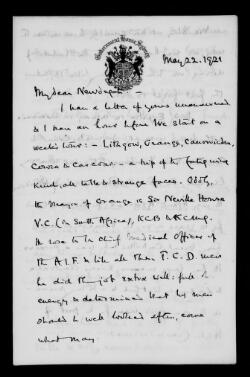 Government House, Sydney
May 22. 1921
My dear Newdigate
I have a letter of yours unanswered
& I have an hour before we start on a
weeks tour: - Lithgow, Orange, Canowindra,
Cowra & Carcoar - a trip of the fatiguing
kind, all talk & strange faces. Oddly,
the Mayor of Orange is Sir Neville Howse
V.C. (in South Africa), KCB & KCMG.
He was to the chief medical officer of
the A.I.F. & like all these T.C.D. men
he did the job extra well: full of
energy & determined that his men
should be well looked after, come
what may.